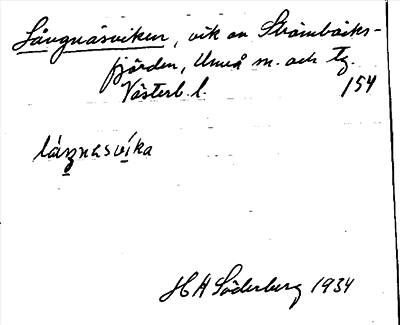 Långnäsviken, vik av Strömbäcks-
fjärden, Umeå sn. och tg.
Västerb. l. 154
låŋnasvika
H A Söderberg 1934